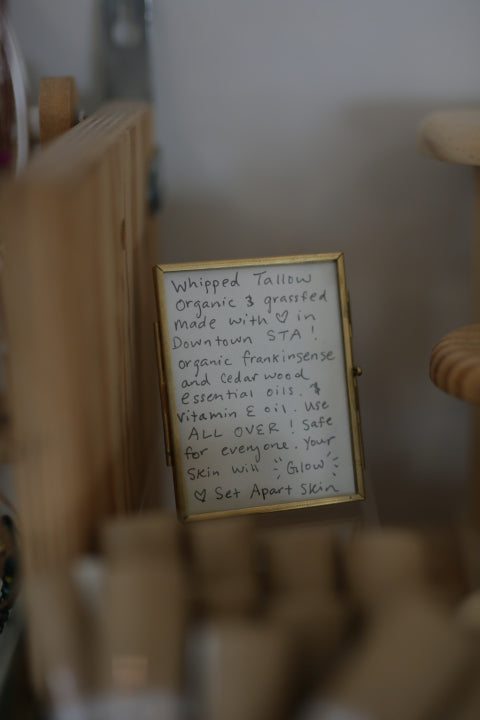 Whipped Tallow
Organic & grassfed
made with ♡ in
Downtown STA!
organic frankinsense
and Cedarwood
essential oils. &
Vitamin E oil. Use
ALL OVER! Safe
for everyone. Your
Skin will Glow
♡ Set Apart Skin